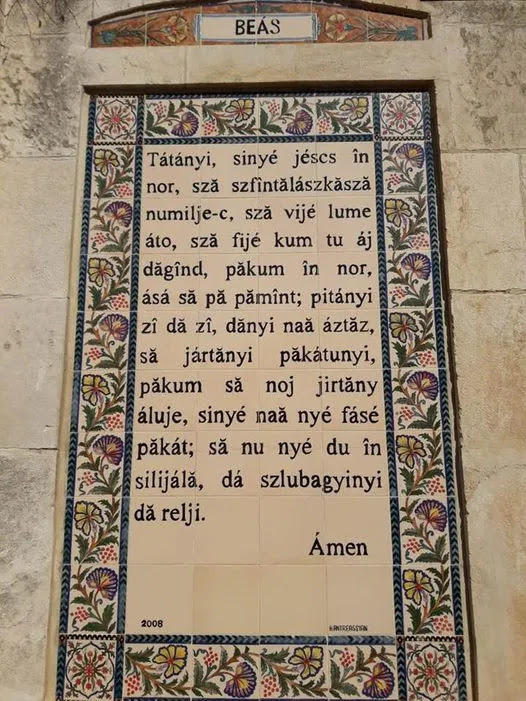 BEÁS
Tátányi, sinyé jéscs în
nor, sză szfîntălászkăsză
numilje-c, sză vijé lume
áto, sză fijé kum tu áj
dăgînd, păkum în nor,
ásá să pă pămînt; pitányi
zî dă zî, dănyi naă áztăz,
să jártănyi păkátunyi,
păkum să noj jirtăny
áluje, sinyé naă nyé fásé
păkát; să nu nyé du în
silijálă, dá szlubagyinyi
dă relji.
Ámen
2008